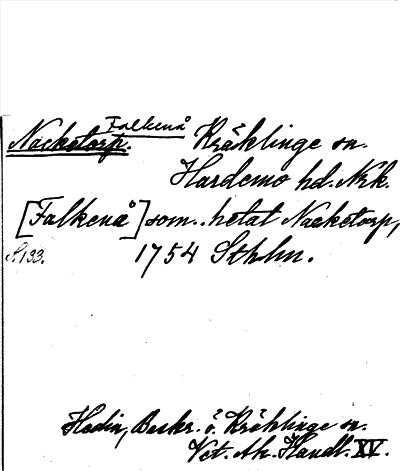 Falkenå
Nacketorp. Kräklinge sn.
Hardemo hd. Nrk.
[Falkenå] som hetat Nacketorp,
S. 133. 1754 Sthlm.
Hedin, Beskr. ö. Kräklinge sn.
Vet. Ak. Handl. XV.